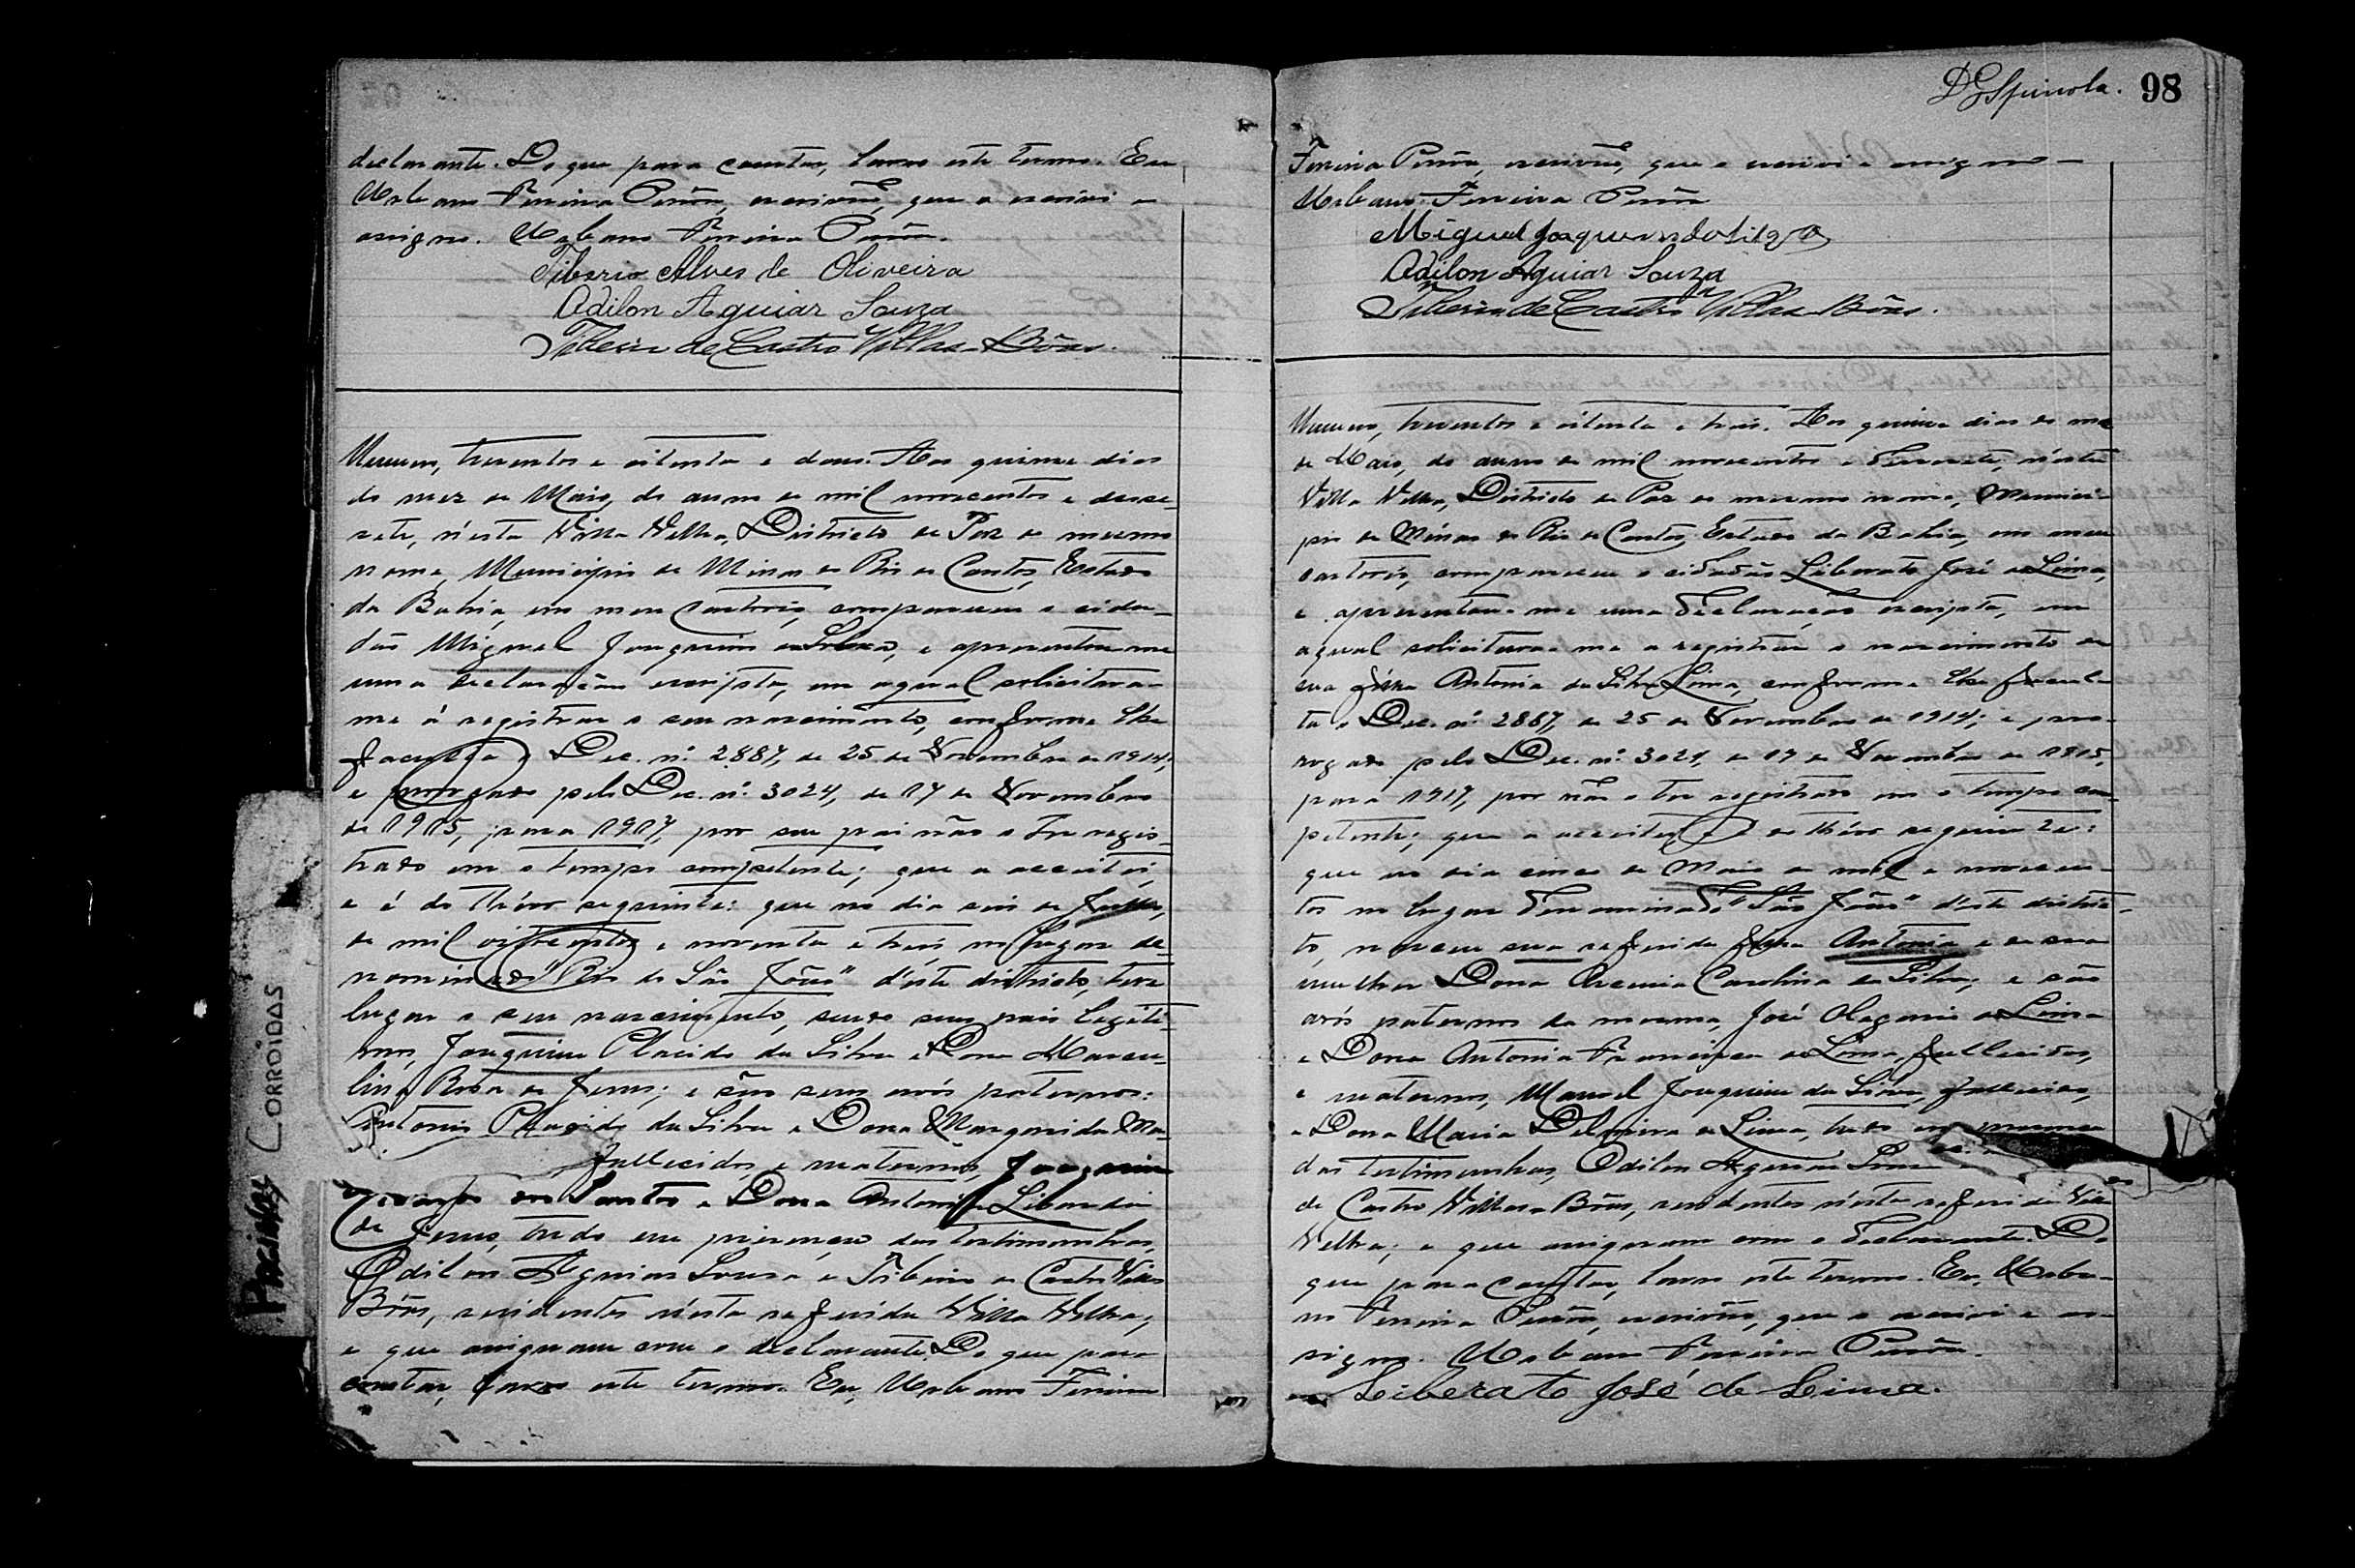 declarante. Do que para constar, lavro este termo. Eu
Urbano Ferreira Pisão, escrivão, que o escrevi e
assigno. Urbano Ferreira
Tiberio Alves de Oliveira
Odilon Aguiar Souza
Tiberio de Castro Villas-Bôas.
Numero, trezentos e oitenta e dous. Aos quinze dias
do mez de Maio, do anno de mil novecentos e dese-
sete, n'esta Villa Velha, Districto de Paz do mesmo
nome, Municipio de Minas do Rio de Contas, Estado
da Bahia, em meu Cartorio, compareceu o cida-
dão Miguel Joaquim da Silva, e apresentou-me
uma declaração escripta, em a qual solicitava-
me á registrar o seu nascimento, conforme lhe
faculta o Dec. nº 2887, de 25 de Novembro de 1914;
e prorogado pelo Dec. nº 3024, de 17 de Novembro
de 1915, para 1917, por seu pai não o ter regis-
trado em o tempo competente; que a acceitei,
e é do théor seguinte: que no dia seis de Julho,
de mil oitocentos e noventa e trez, no lugar de-
nominado "Rio de São João" d'este districto, teve
lugar o seu nascimento, sendo seus pais legiti-
mos, Joaquim Placido da Silva e Dona Marcu-
lina Rosa de Jesus; e são seus avós paternos:
Antonio Placido da Silva e Dona Margarida Ma-
fallecidos, e maternos, Joaquim
dos Santos e Dona Antonia Liberata
de Jesus, tudo em presença das testimunhas,
Odilon Aguiar Souza e Tiberio de Castro Villas
Bôas, residentes n'esta referida Villa Velha;
e que assignam com o declarante. Do que para
constar, lavro este termo. Eu, Urbano Ferreira
D G Spinola. 98
Ferreira escrivão, que o escrevi e assigno-
Urbano Ferreira
Miguel Joaquim da Silva
Odilon Aguiar Souza
Tiberio de Castro Villas-Bôas.
Numero, trezentos e oitenta e trez. Aos quinze dias do mez
de Maio, do anno de mil novecentos e desesete, n'esta
Villa Velha, Districto de Paz do mesmo nome, Munici-
pio de Minas do Rio de Contas, Estado da Bahia, em meu
cartorio, compareceu o cidadão Liberato José de Lima,
e apresentou-me uma declaração escripta, em
a qual solicitava-me a registrar o nascimento de
sua filha Antonia da Silva Lima, conforme lhe facul-
ta o Dec. nº 2887, de 25 de Novembro de 1914; e pro-
rogado pelo Dec. nº 3024, de 17 de Novembro de 1915,
para 1917, por não o ter registrado em o tempo com-
petente; que a acceitei, e é do théor seguinte:
que no dia cinco de Maio de mil e novecen-
tos no lugar denominado "São João" d'este distric-
to, nasceu sua referida filha Antonia e de sua
mulher Dona Carolina da Silva; e são
avós paternos da mesma, José Olegario de Lima
e Dona Antonia Francisca de Lima, fallecidos,
e maternos, Manoel Joaquim da Silva, fallecido,
e Dona Maria de Lima, tudo em presença
das testimunhas, Odilon Aguiar
de Castro Villas-Bôas, residentes n'esta referida Villa
Velha; e que assignam com o declarante. Do
que para constar, lavro este termo. Eu, Urba-
no Ferreira escrivão, que o escrevi e as-
signo. Urbano Ferreira
Liberato José de Lima.
PAGINAS CORROIDAS